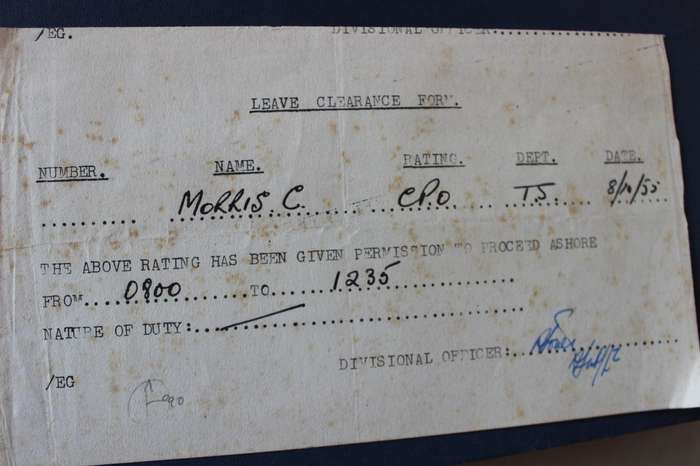 /EG. DIVISIONAL OFFICER:..............................
LEAVE CLEARANCE FORM.
NUMBER. NAME. RATING. DEPT. DATE.
.......... MORRIS C. CPO TS 8/10/55
THE ABOVE RATING HAS BEEN GIVEN PERMISSION TO PROCEED ASHORE
FROM....0900......TO....1235...............
NATURE OF DUTY:...............................
DIVISIONAL OFFICER:..............................
/EG